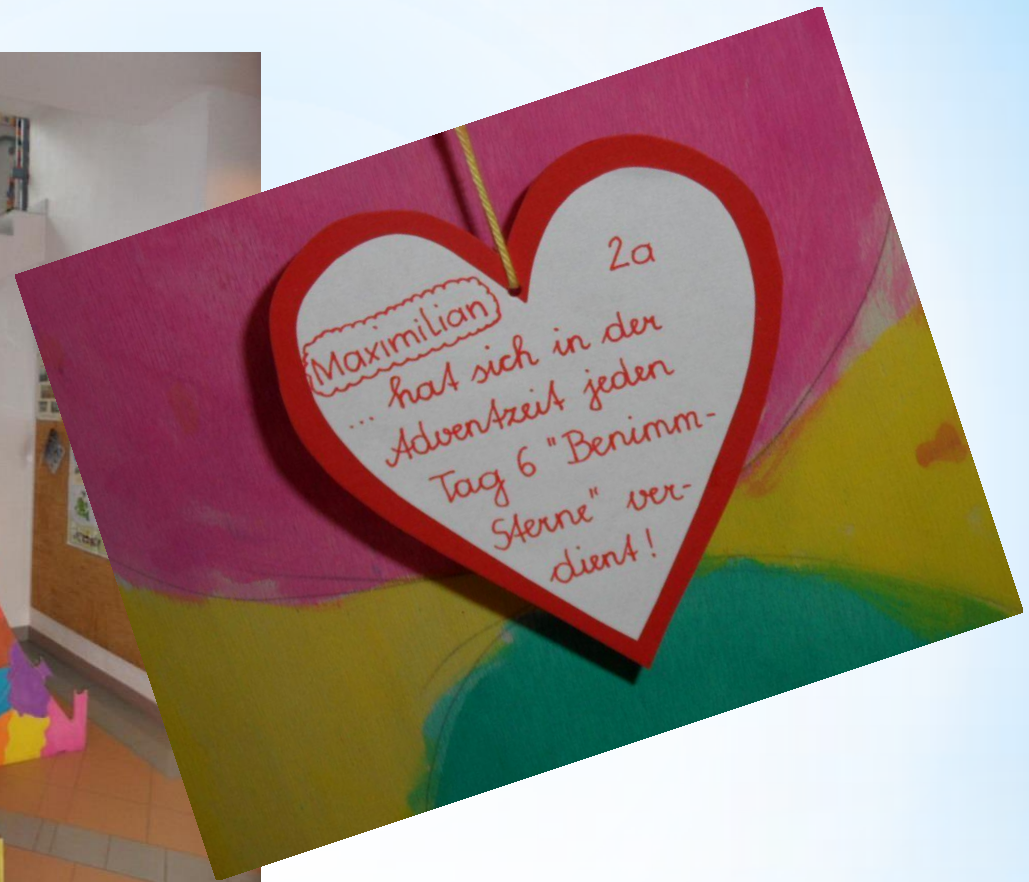 2a
Maximilian
... hat sich in der
Adventzeit jeden
Tag 6 "Benimm-
Sterne" ver-
dient!